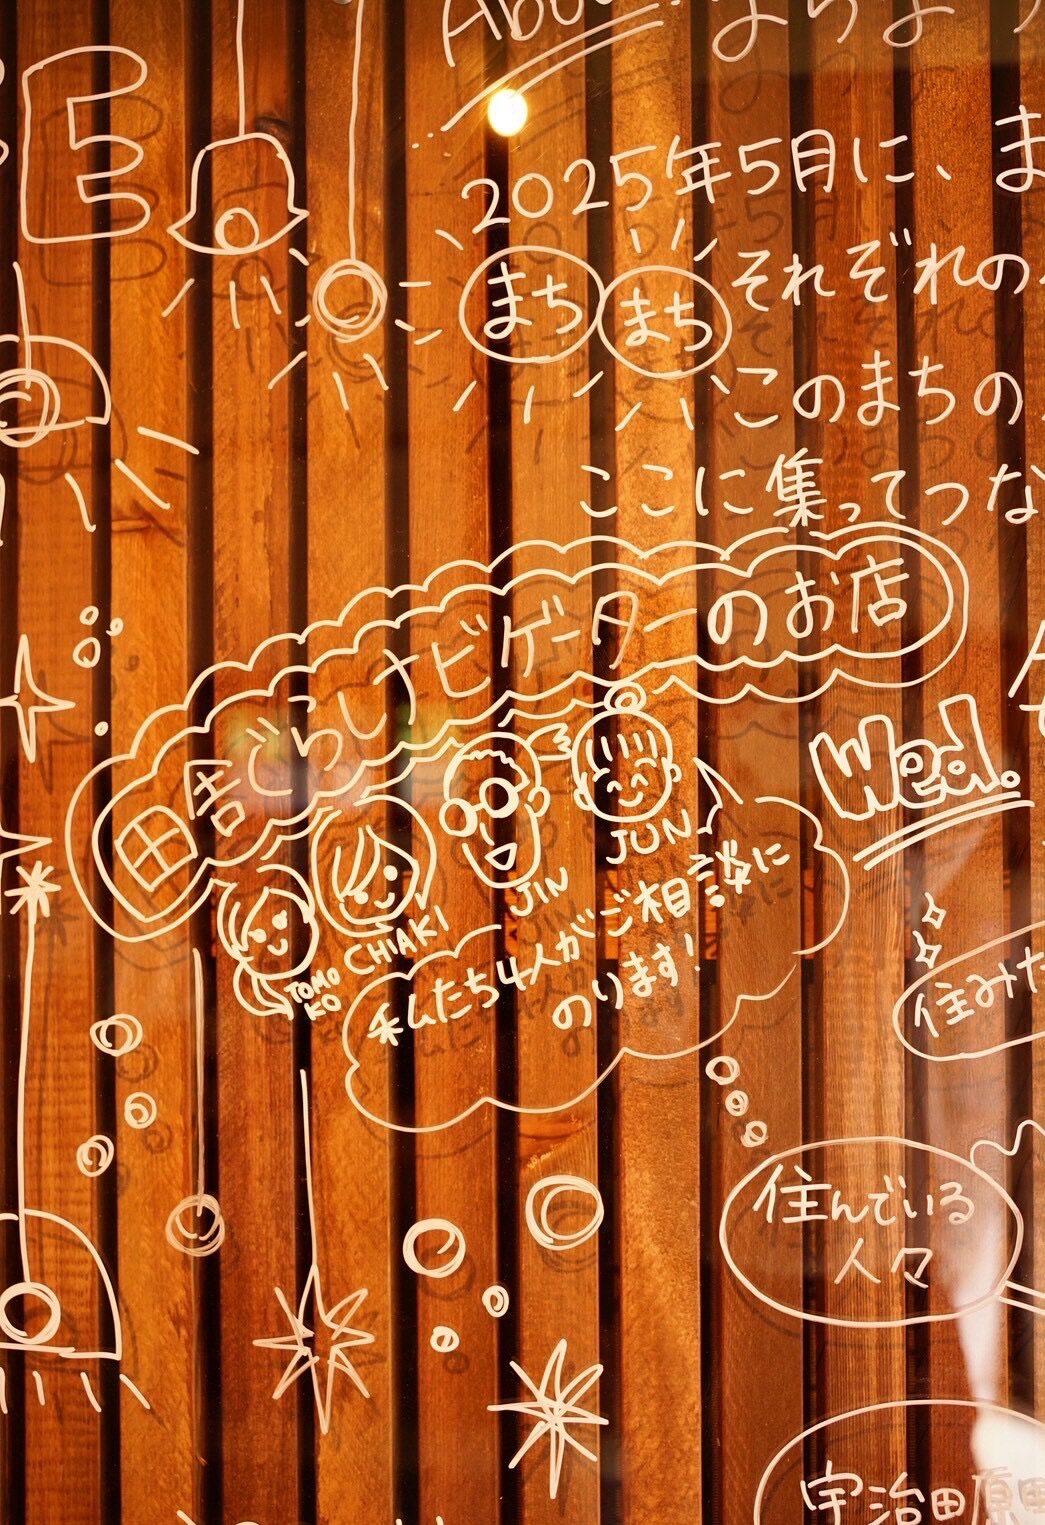 E
About まちまち
2025年5月に、ま
まち まち それぞれの
このまちの
ここに集ってつな
田舎ぐらしナビゲーターのお店
Wed.
TOMOKO
CHIAKI
JIN
JUN
私たち4人がご相談に
のります!
住みた
住んでいる
人々
宇治田原